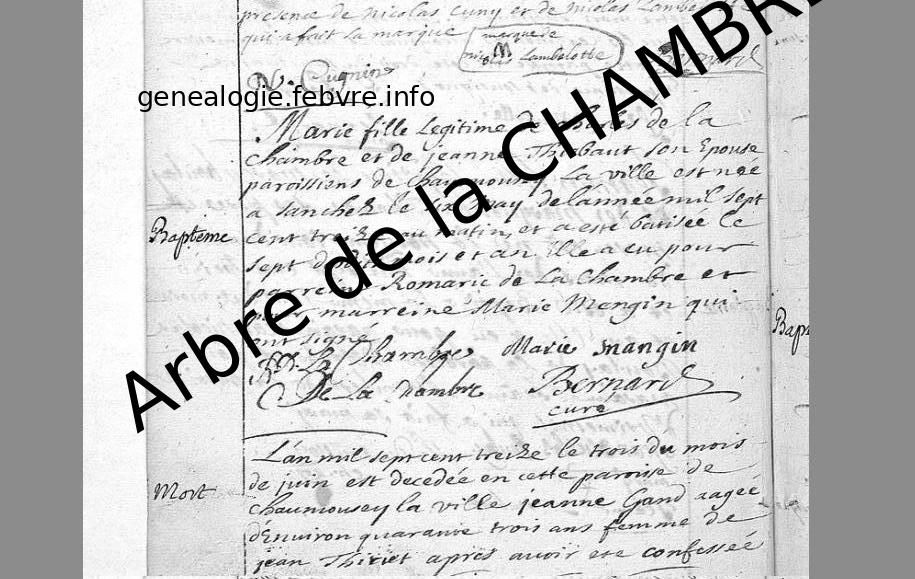 presence de nicolas Cuny et de nicolas Lambe
qui a fait sa marque
marque de
nicolas Lambelotte
N. Cugnin
genealogie.febvre.info
Arbre de la CHAMBRE
Marie fille Legitime de Charles de la
Chambre et de jeanne Thiebaut son Epouse
paroissiens de Chaumousey La ville est née
a sanchez le six may de lánnée mil sept
Baptême
cent treize au matin, et a esté batisée le
sept dudit mois et an ille a eu pour
parrein Romaric de La Chambre et
pour marreine Marie Mengin qui
ont signé
Bapt
R. De La Chambre Marie mangin
De La Chambre Bernard
curé
L'án mil sept cent treize le trois du mois
Mort
de juin est decedée en cette paroise de
chaumousey la ville jeanne Gand aageé
d'Environ quarante trois ans femme de
jean Thiriet apres avoir eté confesseé